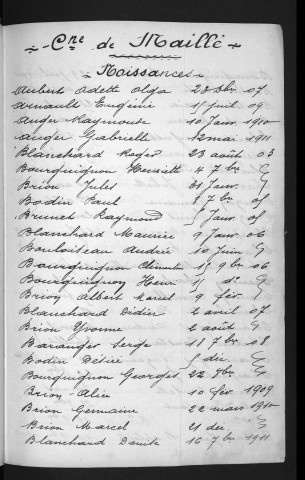 Cne de Maillé
Naissances
Aubert Odette Olga 23 8bre 07
Arnault Eugénie 15 juil 09
Auger Raymonde 10 Janv 1910
Auger Gabrielle 12 mai 1911
Blanchard Roger 23 août 03
Bourguignon Henriette 4 7bre
Brion Jules 31 Janv
Bodin Paul 8 7bre 05
Brunet Raymond 5 Janv 05
Blanchard Maurice 9 Janv 06
Bouloiteau Andrée 10 Juin
Bourguignon Clementine 15 9bre 06
Bourguignon Henri 15 do
Brion Albert Marcel 9 fév.
Blanchard Didier 2 avril 07
Brion Yvonne 2 août
Baranger Serge 18 7bre 08
Bodin Désiré 5 déc.
Bourguignon Georges 22 8bre
Brion Alice 10 fev 1909
Brion Germaine 22 mars 1910
Brion Marcel 21 dec
Blanchard Denise 16 7bre 1911